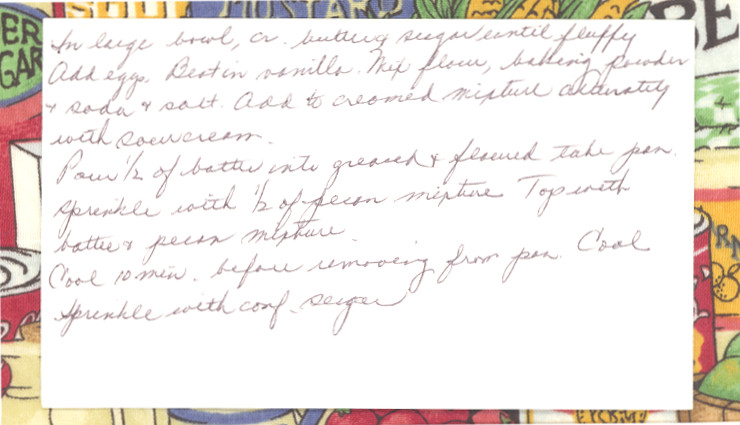 MUSTARD
ER
GAR
BE
In large bowl, cr. butter & sugar until fluffy
Add eggs. Beat in vanilla. Mix flour, baking powder
& soda & salt. Add to creamed mixture alternately
with sour cream.
Pour 1/2 of batter into greased & floured tube pan.
Sprinkle with 1/2 of pecan mixture Top with
batter & pecan mixture.
Cool 10 min. before removing from pan. Cool
Sprinkle with conf. sugar